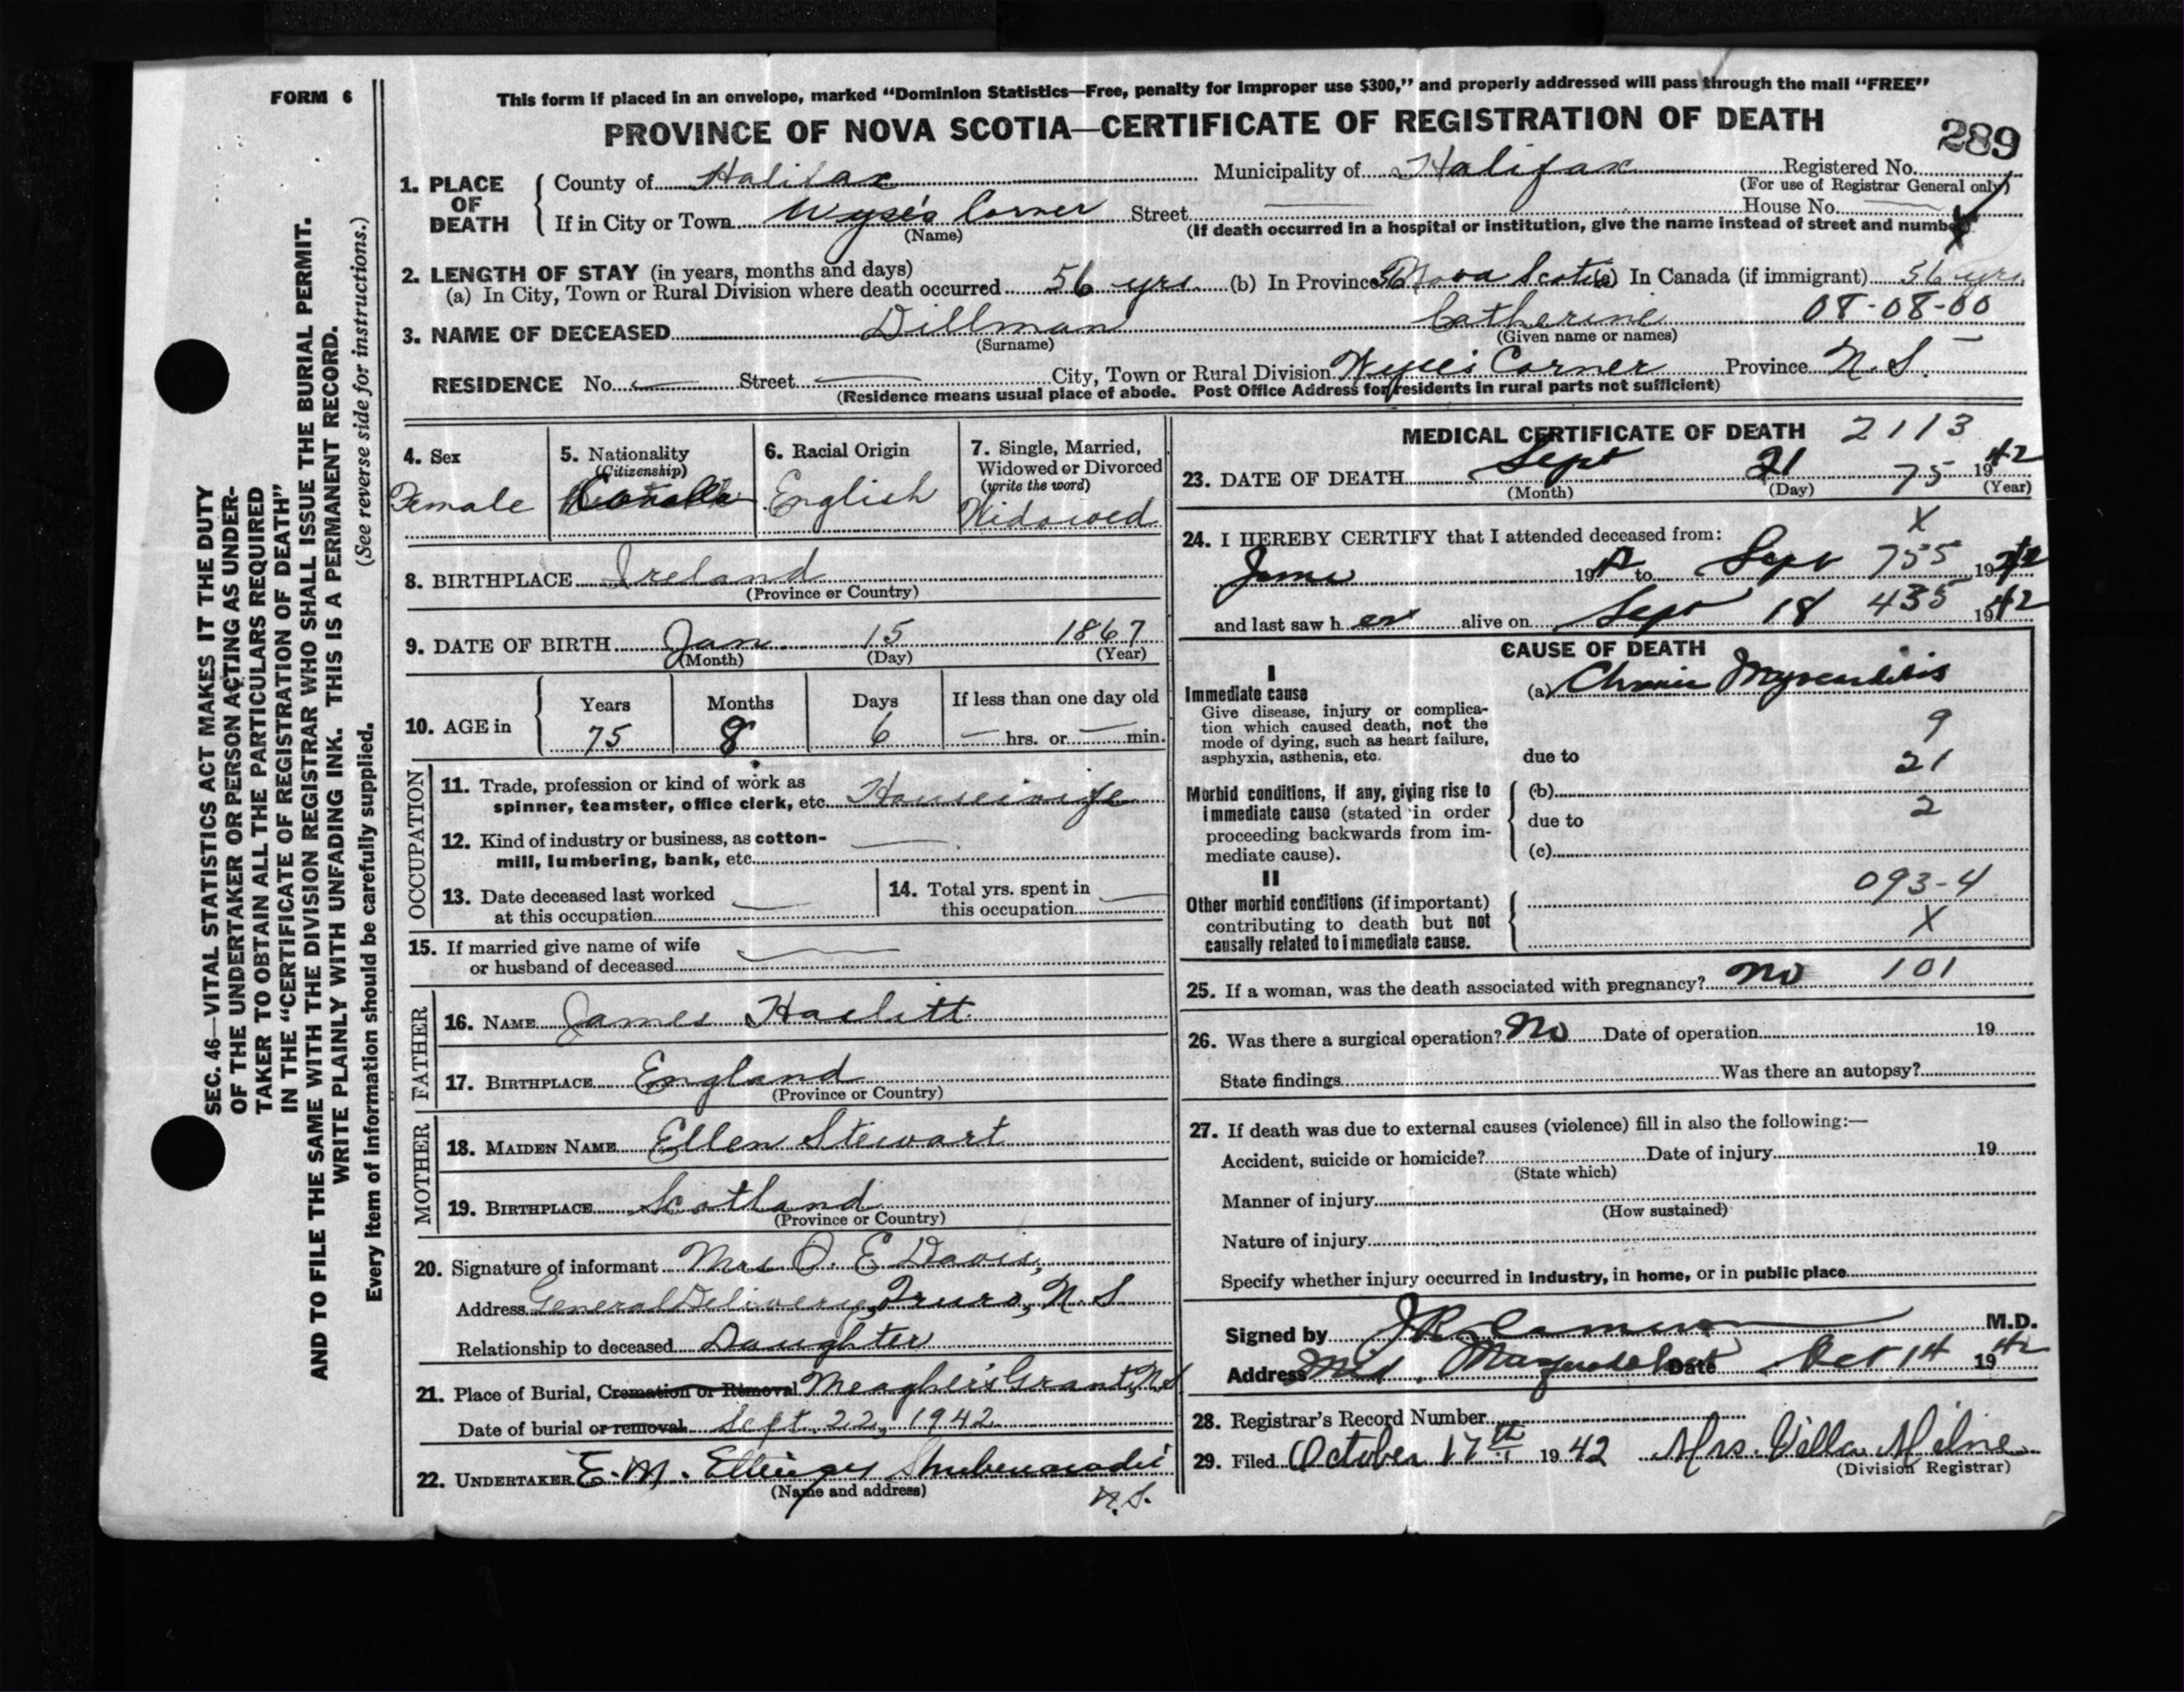 FORM 6
This form if placed in an envelope, marked "Dominion Statistics—Free, penalty for improper use $300," and properly addressed will pass through the mail "FREE"
PROVINCE OF NOVA SCOTIA—CERTIFICATE OF REGISTRATION OF DEATH
289
1. PLACE OF DEATH
County of Halifax Municipality of Halifax Registered No.
(For use of Registrar General only)
If in City or Town Wyse's Corner Street — House No. —
(Name)
(If death occurred in a hospital or institution, give the name instead of street and number)
2. LENGTH OF STAY (in years, months and days)
(a) In City, Town or Rural Division where death occurred 56 yrs (b) In Province 56 Nova Scotia (c) In Canada (if immigrant) 56 yrs
3. NAME OF DECEASED Dillman Catherine 08-08-00
(Surname) (Given name or names)
RESIDENCE No. — Street — City, Town or Rural Division Corner Province N.S.
(Residence means usual place of abode. Post Office Address for residents in rural parts not sufficient)
4. Sex
Female
5. Nationality
(Citizenship)
6. Racial Origin
English
7. Single, Married,
Widowed or Divorced
(write the word)
Widowed
8. BIRTHPLACE Ireland
(Province or Country)
9. DATE OF BIRTH Jan. 15 1867
(Month) (Day) (Year)
10. AGE in
Years Months Days If less than one day old
75 8 6 — hrs. or — min.
OCCUPATION
11. Trade, profession or kind of work as
spinner, teamster, office clerk, etc. Housewife
12. Kind of industry or business, as cotton-
mill, lumbering, bank, etc. —
13. Date deceased last worked
at this occupation —
14. Total yrs. spent in
this occupation —
15. If married give name of wife
or husband of deceased —
FATHER
16. NAME James Haslitt
17. BIRTHPLACE England
(Province or Country)
MOTHER
18. MAIDEN NAME Ellen Stewart
19. BIRTHPLACE Scotland
(Province or Country)
20. Signature of informant Mrs O. E Davis,
Address General Delivery, Truro, N.S
Relationship to deceased Daughter
21. Place of Burial, Cremation or Removal Meagher's Grant, N.S
Date of burial or removal Sept. 22, 1942
22. UNDERTAKER E. M. Ettinger Shubenacadie
(Name and address)
N.S.
MEDICAL CERTIFICATE OF DEATH 2113
23. DATE OF DEATH Sept 21 75 1942
(Month) (Day) (Year)
X
24. I HEREBY CERTIFY that I attended deceased from:
June 1942 to Sept 755 1942
and last saw her alive on Sept 18 435 1942
CAUSE OF DEATH
I
Immediate cause
Give disease, injury or complica-
tion which caused death, not the
mode of dying, such as heart failure,
asphyxia, asthenia, etc.
(a) Chronic Myocarditis
9
due to
21
Morbid conditions, if any, giving rise to
immediate cause (stated in order
proceeding backwards from im-
mediate cause).
(b)
2
due to
(c)
II
Other morbid conditions (if important)
contributing to death but not
causally related to immediate cause.
093-4
X
25. If a woman, was the death associated with pregnancy? No 101
26. Was there a surgical operation? No Date of operation 19
State findings Was there an autopsy?
27. If death was due to external causes (violence) fill in also the following:—
Accident, suicide or homicide? Date of injury 19
(State which)
Manner of injury
(How sustained)
Nature of injury
Specify whether injury occurred in industry, in home, or in public place
Signed by J R Cameron M.D.
Address Mid. Musquodoboit Date Oct 14 1942
28. Registrar's Record Number
29. Filed October 17th 1942 Mrs. Villa Milne
(Division Registrar)
SEC. 46—VITAL STATISTICS ACT MAKES IT THE DUTY
OF THE UNDERTAKER OR PERSON ACTING AS UNDER-
TAKER TO OBTAIN ALL THE PARTICULARS REQUIRED
IN THE "CERTIFICATE OF REGISTRATION OF DEATH"
AND TO FILE THE SAME WITH THE DIVISION REGISTRAR WHO SHALL ISSUE THE BURIAL PERMIT.
WRITE PLAINLY WITH UNFADING INK. THIS IS A PERMANENT RECORD.
Every item of information should be carefully supplied. (See reverse side for instructions.)